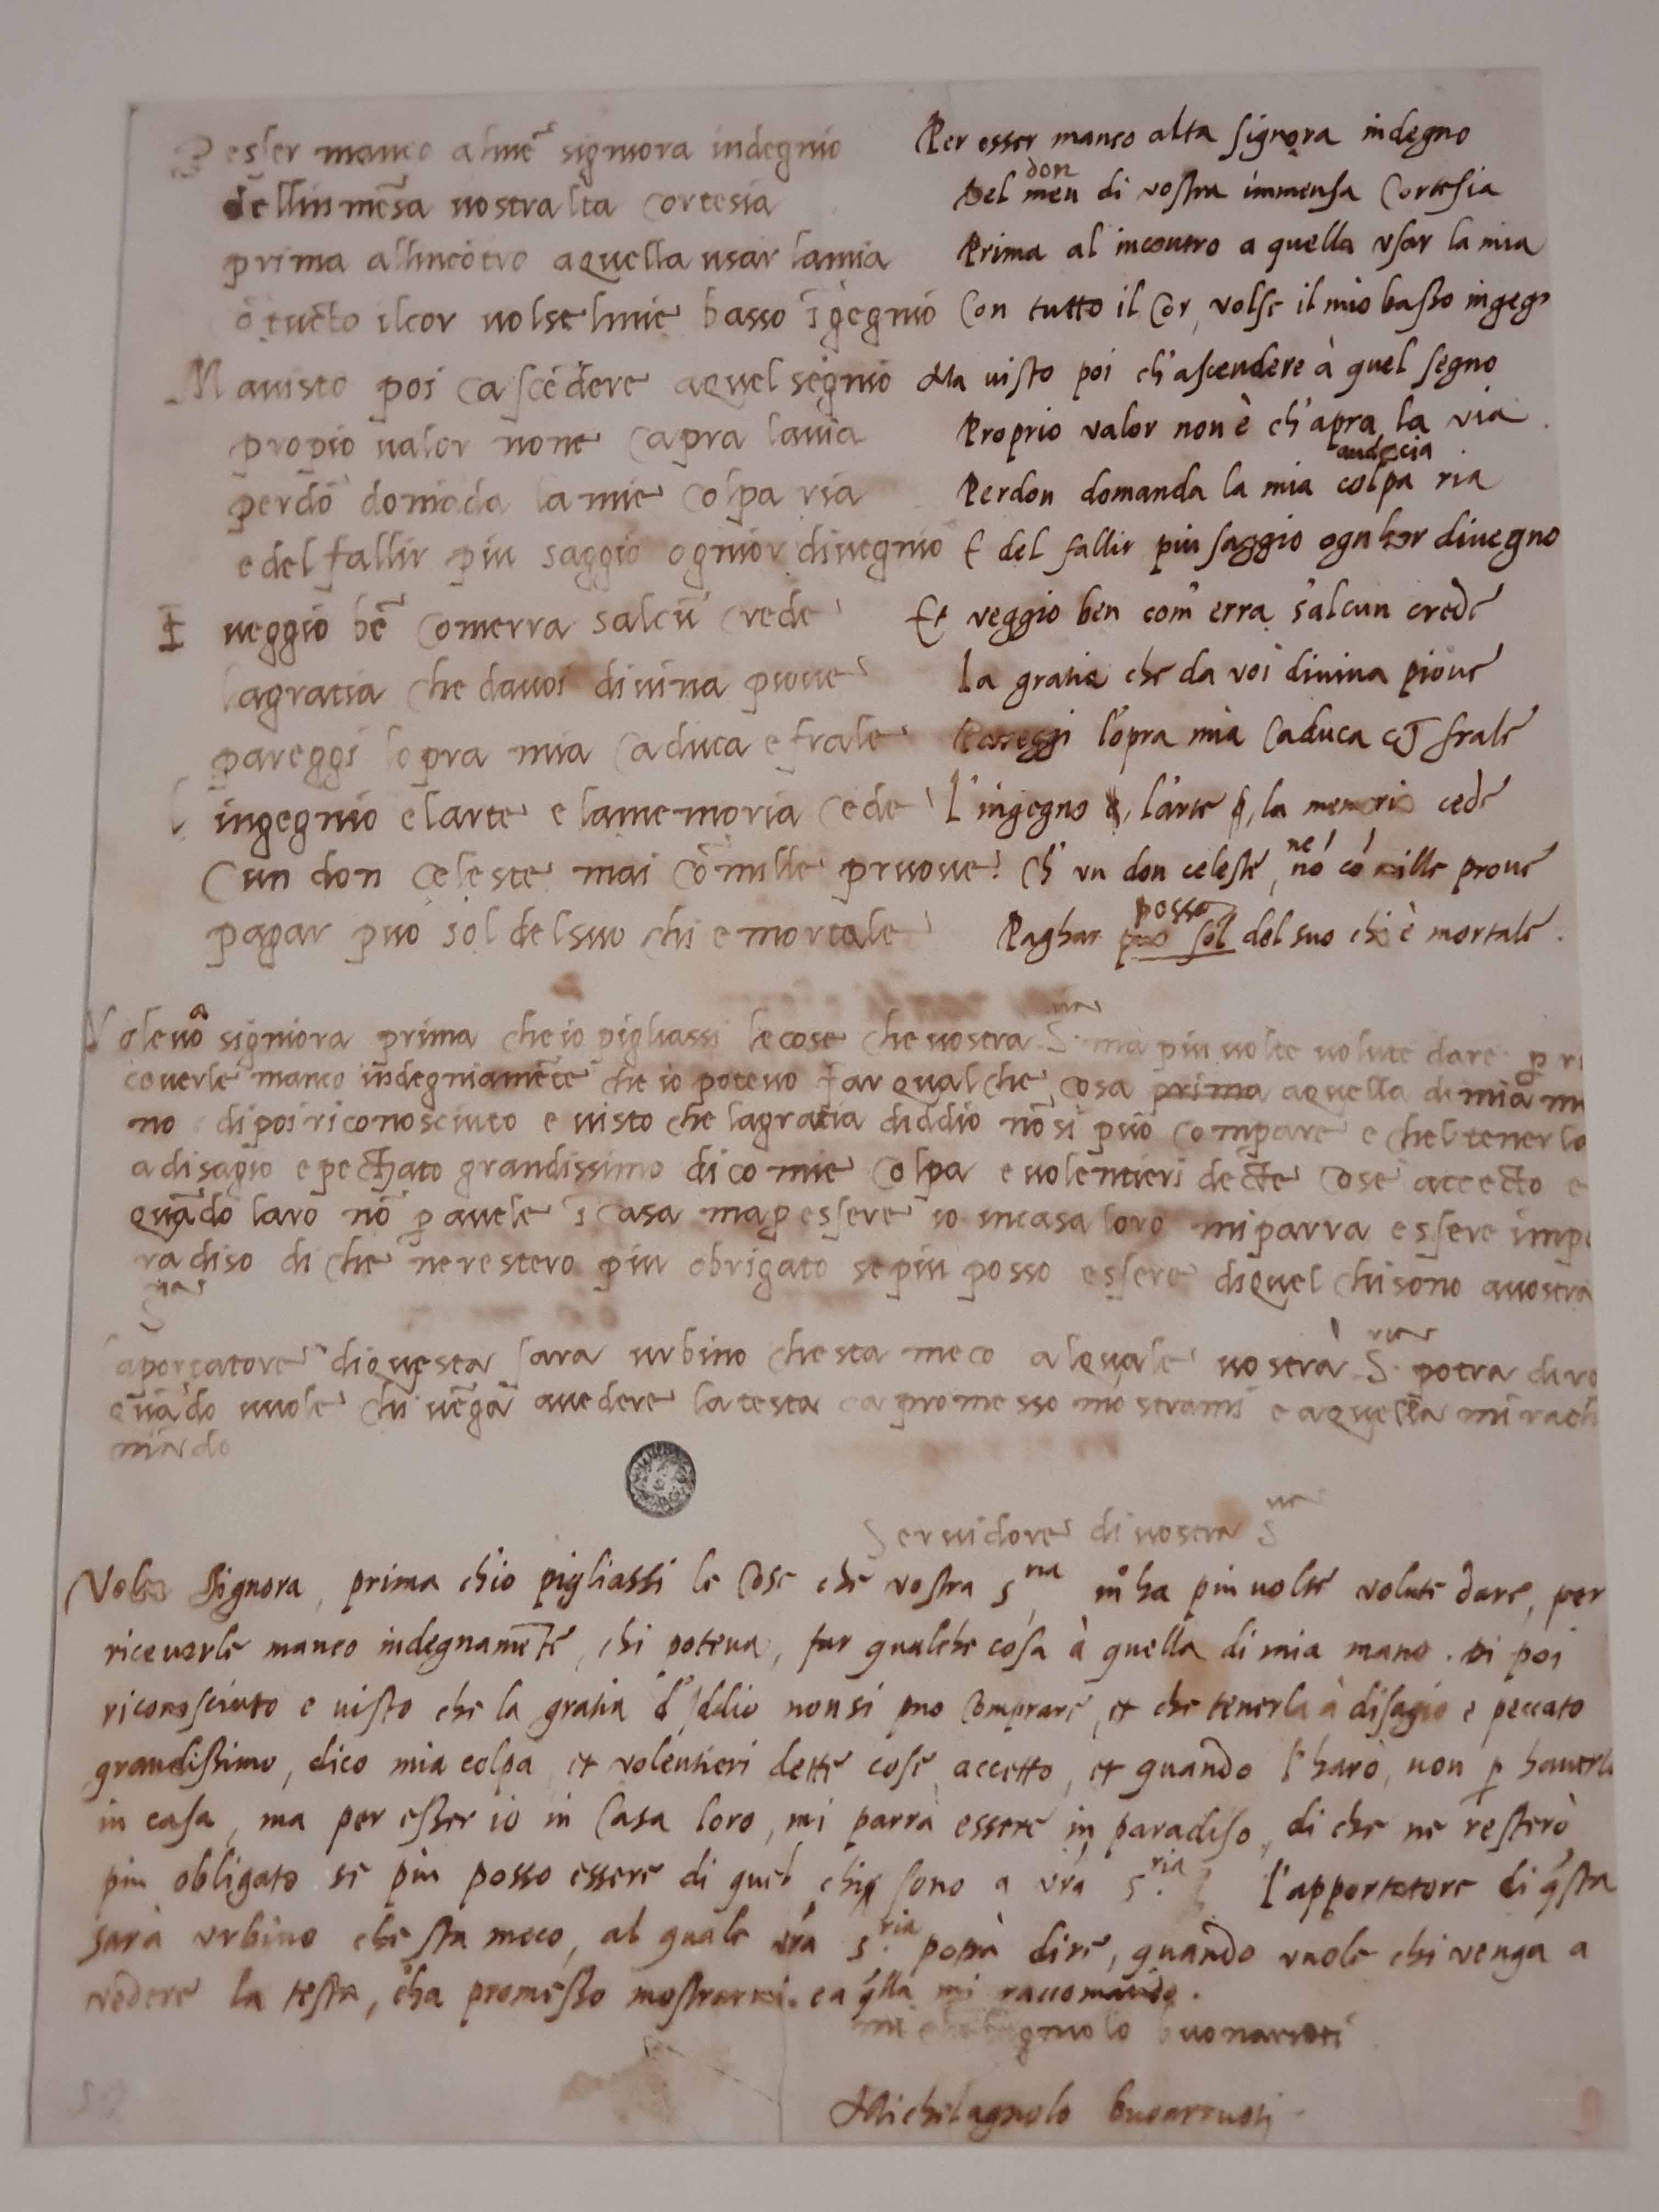 P esser manco almē signiora indegnio
dellinmēsa vostralta cortesia
prima allincōtro aquella usar lamia
cō tucto ilcor volselmie basso īgegnio
Mavisto poi cascēdere aquel segnio
propio valor none capra lavia
perdō domāda lamie colpa ria
e del fallir piu saggio ognior divegnio
E veggio bē comerra salcū crede
lagratia che davoi divina piove
pareggi lopra mia caduca e frale
lingegnio elarte e lamemoria cede
Cun don celeste mai cō mille pruove
pagar puo sol delsuo chi e mortale
Per esser manco alta signora indegno
don
Del men di vostra immensa Cortesia
Prima al incontro a quella usar la mia
Con tutto il Cor, volse il mio basso ingegn
Ma visto poi ch'ascendere à quel segno
Proprio valor non è ch'apra la via
audacia
Perdon domanda la mia colpa ria
E del fallir piu saggio ogn hor divegno
Et veggio ben com' erra s'alcun crede
la gratia che da voi divina piove
Pareggi l'opra mia Caduca et frale
L'ingegno, l'arte, la memoria cede
ne
Ch' un don celeste, nō cō mille prove
posso
Paghar puo sol del suo chi è mortale.
Volevo signiora prima che io pigliassi lecose che vostra S.ria ma piu volte volute dare p ri
ceverle manco indegniamēte che io potevo far qualche cosa prima aquella di mia ma
no dipoi riconosciuto e visto che lagratia diddio nō si puo compare e chel tenerla
adisagio e pechato grandissimo dico mie colpa e volentieri decte cose accecto e
quādo laro nō p avele ī casa ma p essere io incasa loro miparra essere impa
radiso di che nerestero piu obrigato se piu posso essere diquel chisono avostra
S.ria
laportatore diquesta sara urbino che sta meco alquale vostra S.ria potra diro
quādo vuole chi vēga avedere latesta ca promesso mostrarmi e aquella mi rach
mādo
Servidore di vostra S.ria
Voleo Signora, prima ch'io pigliassi le Cose che vostra s.ria m'ha piu volte volute dare, per
riceverle manco indegnamēte, chi poteva, far qualche cosa à quella di mia mano. Di poi
riconosciuto e visto che la gratia d'Iddio non si puo Comprare, et che tenerla à disagio e peccato
grandissimo, dico mia colpa, et volentieri dette cose accetto, et quando l'harò, non p haverle
in casa, ma per esser io in Casa loro, mi parrà essere in paradiso, di che ne resterò
piu obligato se piu posso essere di quel chi sono a vrā s.ria l'apportatore di qsta
sarà urbino che sta meco, al quale vrā s.ria potrà dire, quando vuole chi venga a
vedere la testa, cha promesso mostrarmi. e a qlla mi raccomando.
michelagniolo buonarroti
Michelagnolo buonarruoti
9